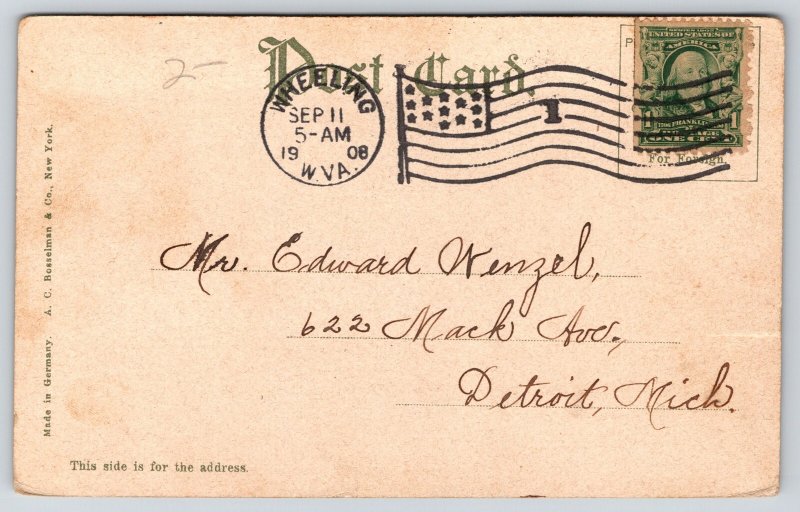 Post Card.
2-
WHEELING
SEP 11
5-AM
19 08
W.VA.
1
UNITED STATES OF
AMERICA
1 FRANKLIN 1
ONE CENT
For Foreign
Mr. Edward Wenzel,
622 Mack Ave.,
Detroit, Mich.
Made in Germany. A. C. Bosselman & Co., New York.
This side is for the address.